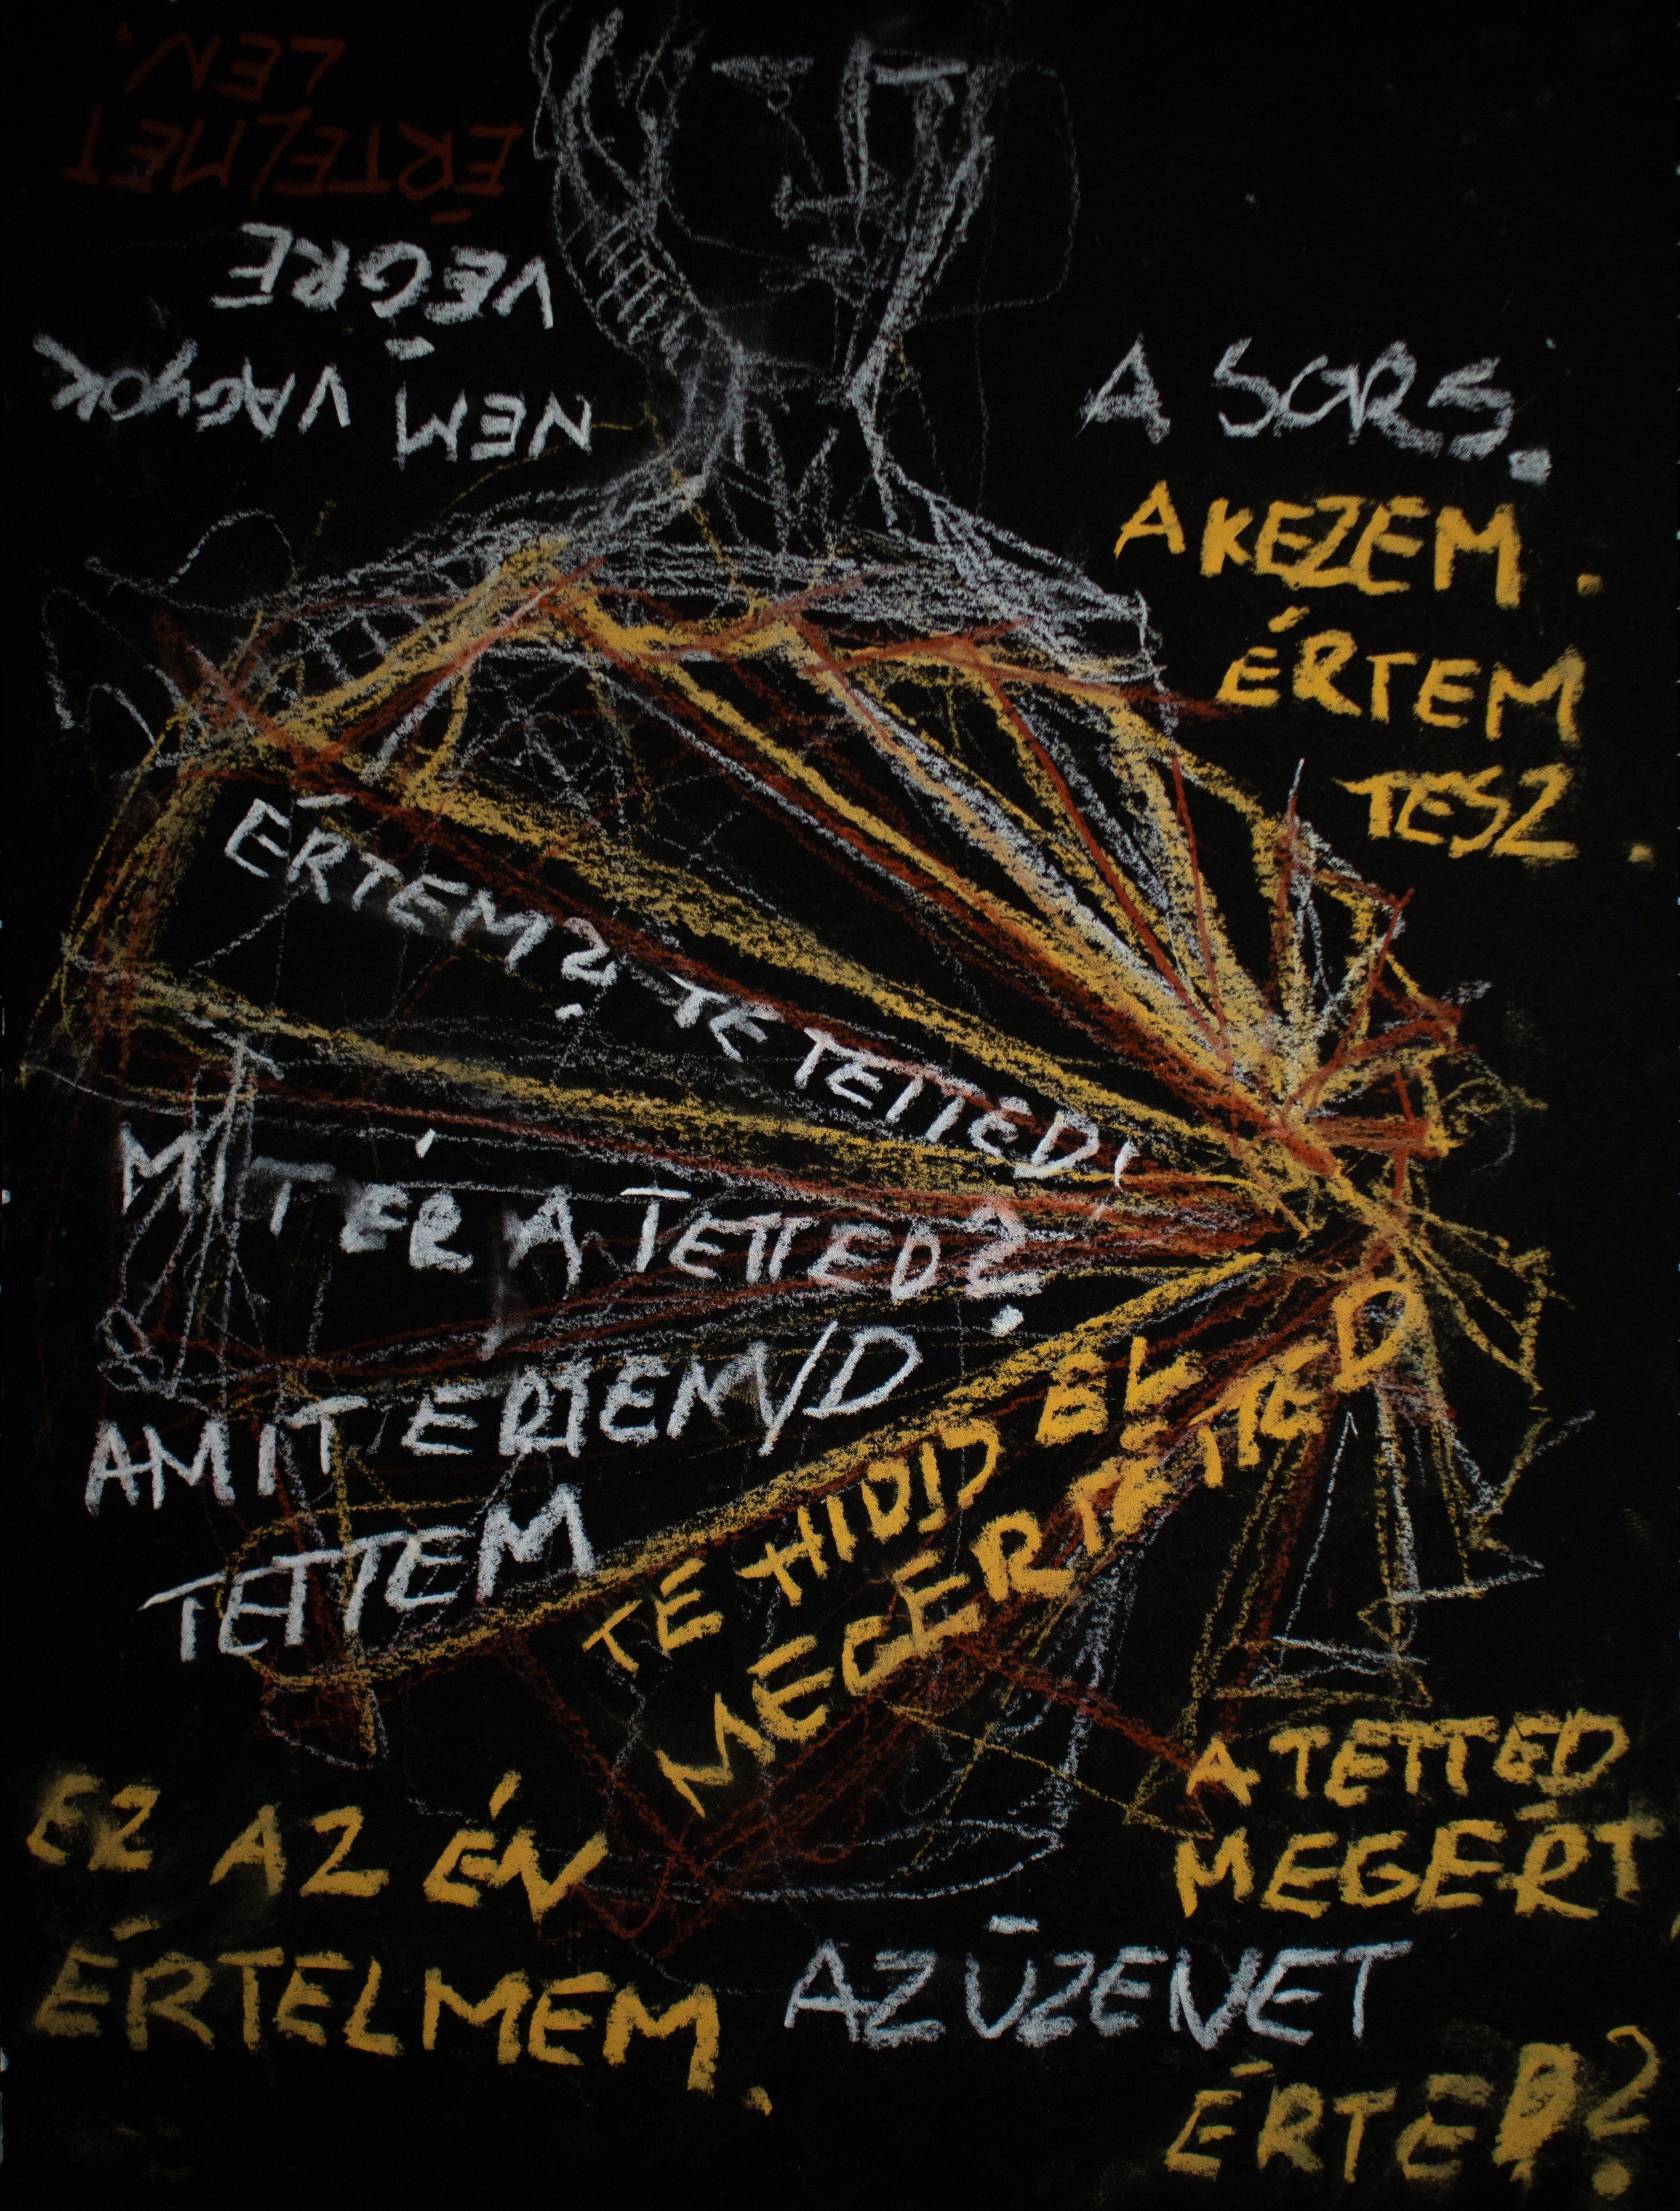 NEM VAGYOK
VÉGRE
ÉRTELMET
LEN.
A SORS.
A KEZEM.
ÉRTEM
TESZ.
ÉRTEM? TE TETTED!
MIT ÉR A TETTED?
AMIT ERTEM/D
TETTEM
TE HIDD EL
MEGERTETTED
A TETTED
MEGÉRT
EZ AZ ÉN
ÉRTELMEM.
AZ ÜZENET
ÉRTED?